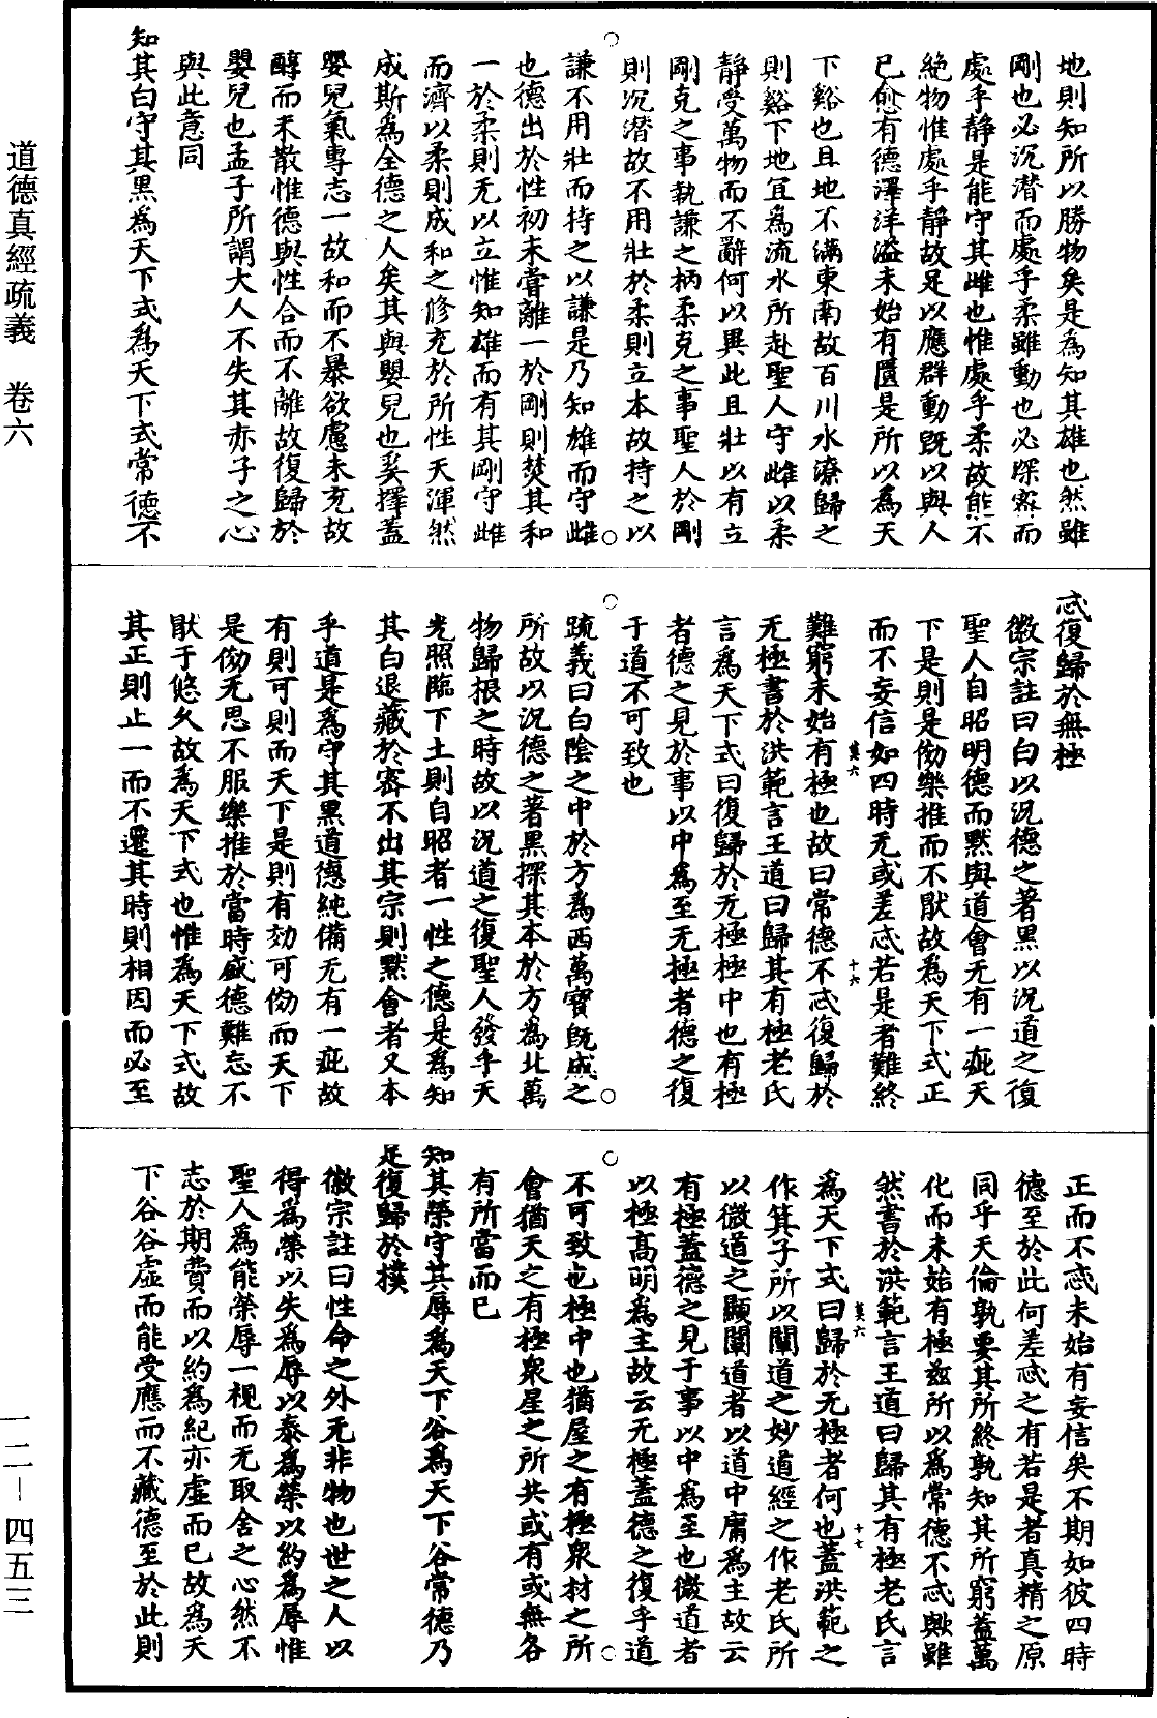 地則知所以勝物矣是為知其雄也然雖
剛也必沉潜而處乎柔雖動也必深密而
處乎静是能守其雌也惟處乎柔故能不
絶物惟處乎静故足以應群動旣以與人
已愈有德澤洋溢未始有匱是所以為天
下谿也且地不滿東南故百川水潦歸之
則谿下地冝為流水所赴聖人守雌以柔
静受萬物而不辭何以異此且壯以有立
剛克之事執謙之柄柔克之事聖人於剛
則沉潜故不用壯於柔則立本故持之以
謙不用壯而持之以謙是乃知雄而守雌
也德出於性初未嘗離一於剛則焚其和
一於柔則无以立惟知雄而有其剛守雌
而濟以柔則成和之修充於所性天渾然
成斯為全德之人矣其與嬰兒也奚擇蓋
嬰兒氣專志一故和而不暴欲慮未充故
醇而未散惟德與性合而不離故復歸於
嬰兒也孟子所謂大人不失其赤子之心
與此意同
知其白守其黑為天下式為天下式常德不
忒復歸於無極
徽宗註曰白以況德之著黑以況道之復
聖人自昭明德而默與道會无有一疵天
下是則是傚樂推而不猒故為天下式正
而不妄信如四時无或差忒若是者難終
難窮未始有極也故曰常德不忒復歸於
无極書於洪範言王道曰歸其有極老氏
言為天下式曰復歸於无極極中也有極
者德之見於事以中為至无極者德之復
于道不可致也
疏義曰白陰之中於方為西萬寶旣成之
所故以況德之著黑探其本於方為北萬
物歸根之時故以況道之復聖人發乎天
光照臨下土則自昭者一性之德是為知
其白退藏於宻不出其宗則默會者又本
乎道是為守其黑道德純備无有一疵故
有則可則而天下是則有効可傚而天下
是傚无思不服樂推於當時盛德難忘不
猒于悠久故為天下式也惟為天下式故
其正則止一而不遷其時則相因而必至
正而不忒未始有妄信矣不期如彼四時
德至於此何差忒之有若是者真精之原
同乎天倫孰要其所終孰知其所窮蓋萬
化而未始有極兹所以為常德不忒歟雖
然書於洪範言王道曰歸其有極老氏言
為天下式曰歸於无極者何也蓋洪範之
作箕子所以闡道之妙道經之作老氏所
以微道之顯闡道者以道中庸為主故云
有極蓋德之見于事以中為至也微道者
以極高明為主故云无極蓋德之復乎道
不可致也極中也猶屋之有極衆材之所
會猶天之有極衆星之所共或有或無各
有所當而已
知其榮守其辱為天下谷為天下谷常德乃
足復歸於樸
徽宗註曰性命之外无非物也世之人以
得為榮以失為辱以泰為榮以約為辱惟
聖人為能榮辱一視而无取舍之心然不
志於期費而以約為紀亦虛而已故為天
下谷谷虛而能受應而不藏德至於此則
莫六
十六
莫六
十七
道德真經疏義　卷六
一二－四五三